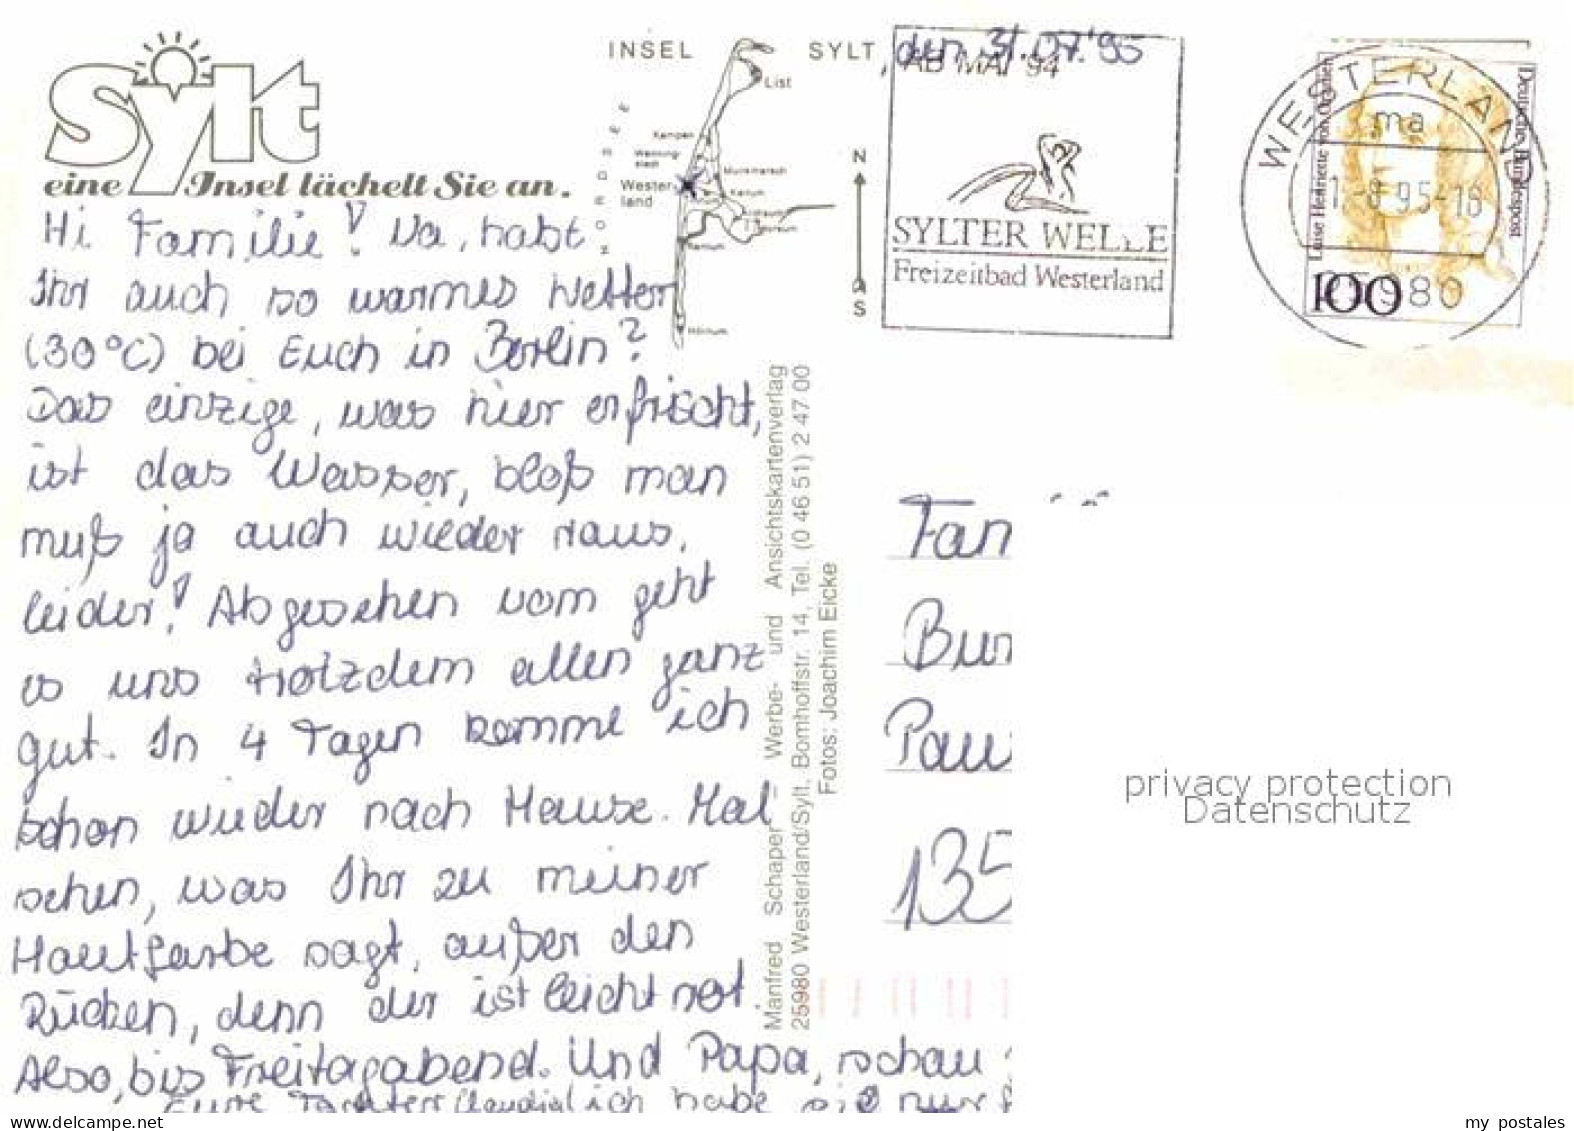 Sylt
eine Insel lächelt Sie an.
INSEL SYLT, den 31.07.'95
List
Kampen
Wenning-
stedt
Munkmarsch
Wester-
land
Keitum
Rantum
Hörnum
NORDSEE
N
S
AB MAI 94
SYLTER WELLE
Freizeitbad Westerland
WESTERLAND
ma
-8.95-18
25980
Deutsche Bundespost
Luise Henriette von Oranien
100
Hi Familie! Na, habt
Ihr auch so warmes Wetter
(30°C) bei Euch in Berlin?
Das einzige, was hier erfrischt,
ist das Wasser, bloß man
muß ja auch wieder raus,
leider! Abgesehen vom geht
es uns trotzdem allen ganz
gut. In 4 Tagen komme ich
schon wieder nach Hause. Mal
sehen, was Ihr zu meiner
Hautfarbe sagt, außer den
Rücken, denn der ist leicht rot.
Also, bis Freitagabend. Und Papa, schau
Eure Tochter Claudia! ich habe sie nur
Manfred Schaper - Werbe- und Ansichtskartenverlag
25980 Westerland/Sylt, Bomhoffstr. 14, Tel. (0 46 51) 2 47 00
Fotos: Joachim Eicke
Fam
Bur
Pau
135
privacy protection
Datenschutz
www.delcampe.net
my postales